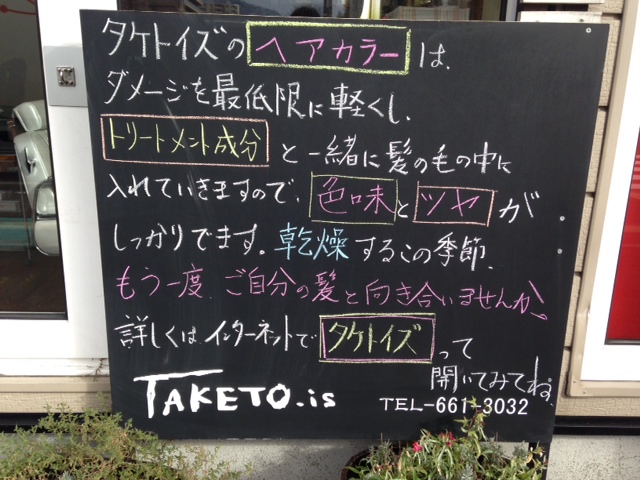 タケトイズのヘアカラーは、
ダメージを最低限に軽くし、
トリートメント成分と一緒に髪の毛の中に
入れていきますので、色味とツヤが
しっかりでます。乾燥するこの季節、
もう一度、ご自分の髪と向き合いませんか。
詳しくはインターネットでタケトイズって
開いてみてね。
TAKETO.is TEL-661-3032